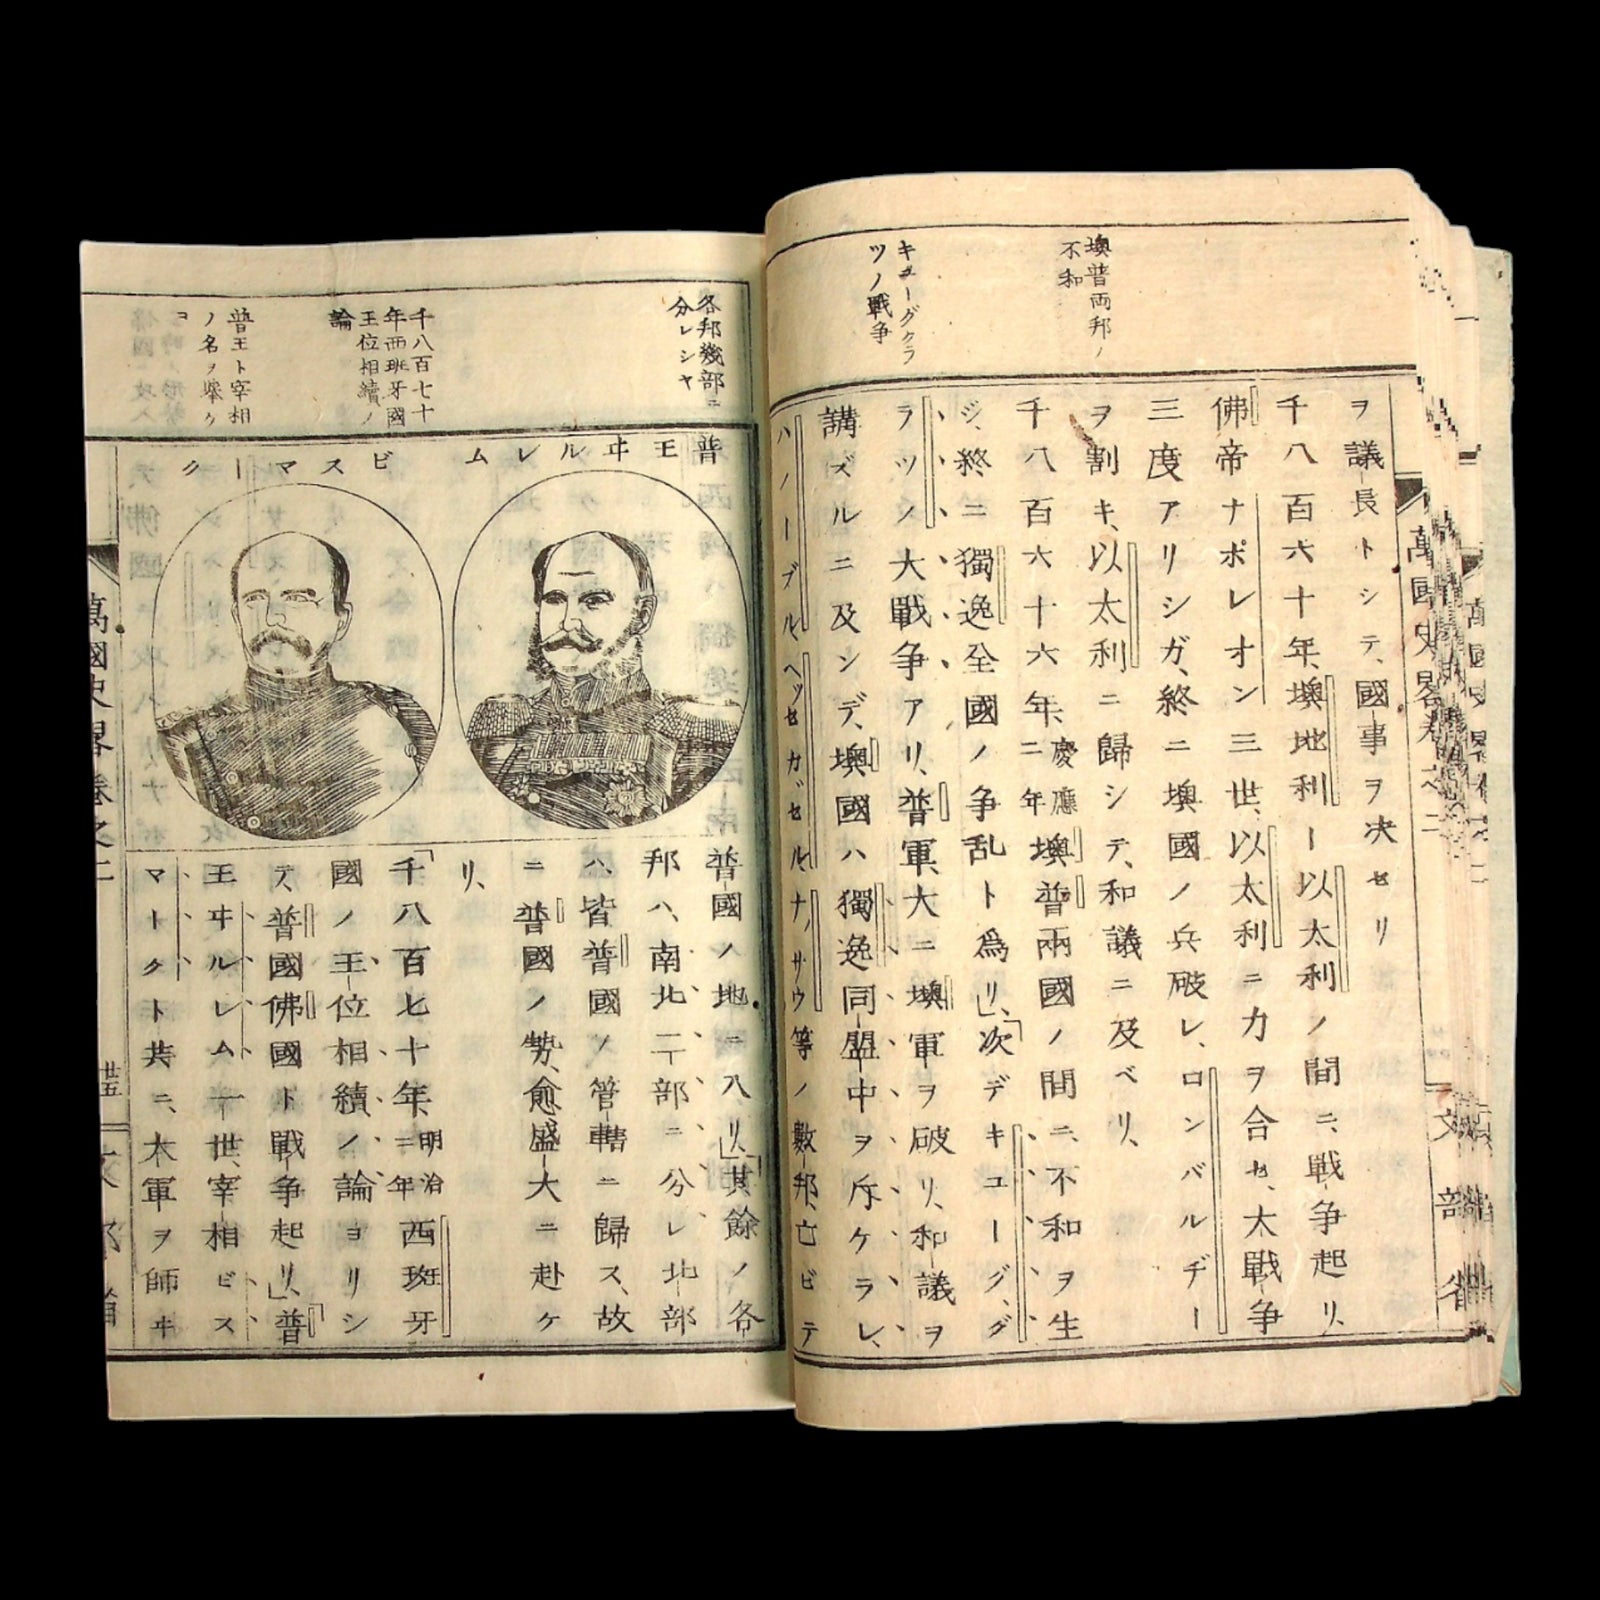 墺普両邦ノ
不和
キューグクラ
ツノ戦争
ヲ議長トシテ、國事ヲ决セリ
千八百六十年、墺地利ー以太利ノ間ニ、戦争起リ、
佛帝ナポレオン三世、以太利ニ力ヲ合セ、大戦争
三度アリシガ、終ニ墺國ノ兵破レ、ロンバルヂー
ヲ割キ、以太利ニ歸シテ、和議ニ及ベリ、
千八百六十六年、慶應二年墺普兩國ノ間ニ、不和ヲ生
ジ、終ニ獨逸全國ノ争乱ト為リ」、次デキユーグ、グ
ラツノ大戰争アリ、普軍、大ニ墺軍ヲ破リ、和議ヲ
講ズルニ及ンデ、墺國ハ獨逸同盟中ヲ斥ケラレ、
ハノーブル、ヘッセカッセル、ナ、サウ等ノ數邦、亡ビテ
萬國史畧巻之二
文部省
各邦幾部ニ
分レシヤ
千八百七十
年西班牙國
王位相續ノ
論
普王ト宰相
ノ名ヲ擧ケ
ヨ
普王ヰルレム
ビスマーク
普國ノ地ニ入リ」、其餘ノ各
邦ハ、南北二部ニ分レ北部
ハ、皆普國ノ管轄ニ歸ス、故
ニ普國ノ勢、愈盛大ニ赴ケ
リ、
千八百七十年、明治三年西班牙
國ノ王位相續ノ論ヨリシ
テ、普國佛國ト戰争起リ」、普
王ヰルレム一世、宰相ビス
マークト共ニ、大軍ヲ師ヰ
萬國史畧巻之二
廿五
文部省